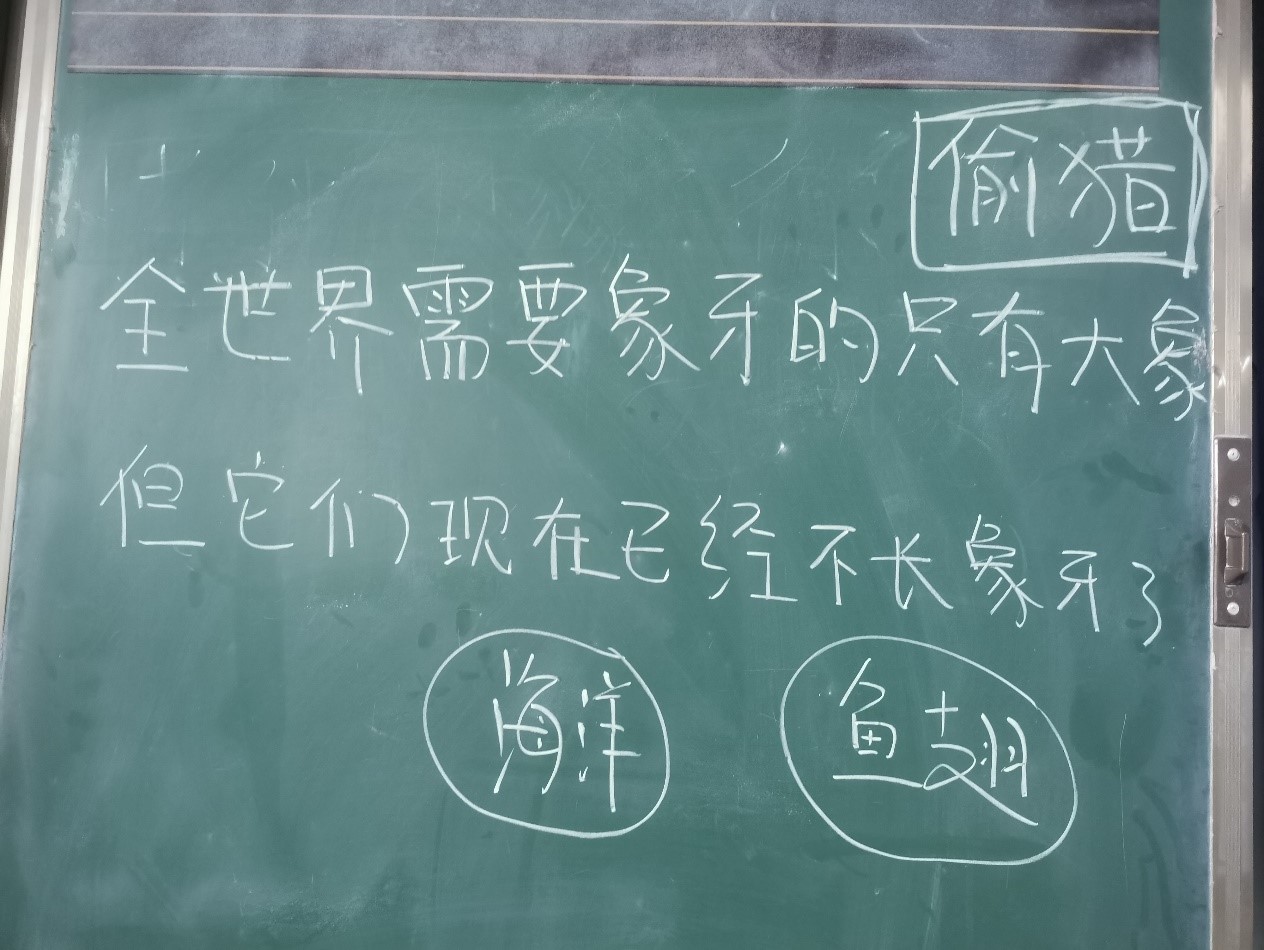 偷猎
全世界需要象牙的只有大象
但它们现在已经不长象牙了
海洋 鱼翅